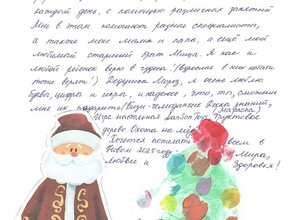 каждой день, с помощью различных занятий
Мне в этом помогают разные специалисты,
а также мои мама и папа, а ещё мой
любимый старший брат Миша. Я как и
любой ребенок верю в чудеса (взрослые в них
тоже верят.) Дедушка Мороз, я очень люблю
буквы, цифры и игры, и надеюсь, что ты, сможешь
мне их подарить! Доска знаний,
Игра настольная Фруктовое
дерево Охота на
Хочется пожелать всем в
Новом 2025 Мира,
Любви и Здоровья!